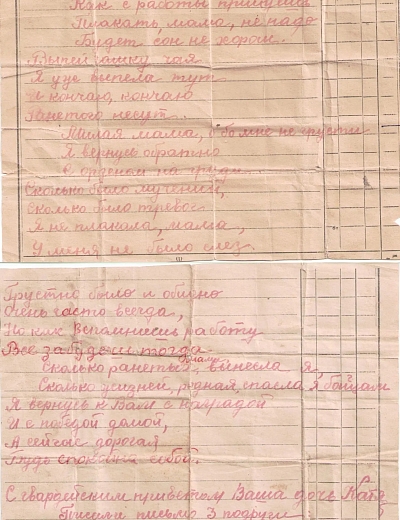 Как с работы придешь
Плакать, мама, не надо
Будет сон не хорош.
Выпей чашку чая
Я уже выпела тут
И кончаю, кончаю
Ранетого несут.
Милая мама, обо мне не грусти
Я вернусь обратно
С орденом на груди.
Сколько было мучений,
Сколько было тревог
Я не плакала, мама,
У меня не было слез.
Грустно было и обидно
Очень часто всегда,
Но как вспомнишь работу
Все забудешь тогда.
Сколько ранетых, вынесла я,
Сколько жизней, родная, спасла я бойцам
Я вернусь к Вам с наградой
И с победой домой,
А сейчас дорогая
Будь спокойна собой.
С гвардейским приветом Ваша дочь Катя
Писали письмо 3 подруги